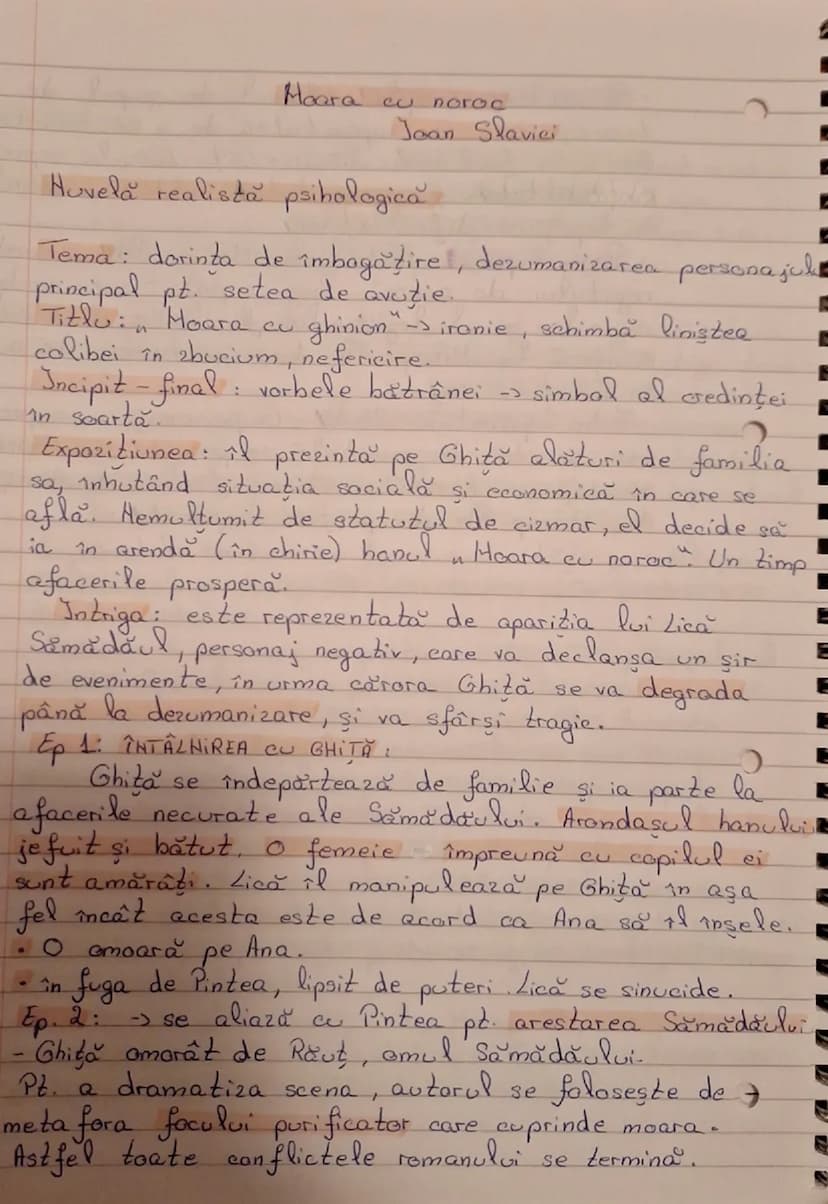 Moara cu noroc
Ioan Slavici
Nuvelă realistă psihologică
Tema: dorința de îmbogățire, dezumanizarea personajului
principal pt. setea de avuție.
Titlu: „Moara cu ghinion" -> ironie, schimbă liniștea
colibei în zbucium, nefericire.
Incipit - final: vorbele bătrânei -> simbol al credinței
în soartă.
Expozițiunea: îl prezintă pe Ghiță alături de familia
sa, înhutând situația socială și economică în care se
află. Nemulțumit de statutul de cizmar, el decide să
ia în arendă (în chirie) hanul „Moara cu noroc". Un timp
afacerile prosperă.
Intriga: este reprezentată de apariția lui Lică
Sămădăul, personaj negativ, care va declanșa un șir
de evenimente, în urma cărora Ghiță se va degrada
până la dezumanizare, și va sfârși tragic.
Ep 1: ÎNTÂLNIREA CU GHIȚĂ:
Ghiță se îndepărtează de familie și ia parte la
afacerile necurate ale Sămădăului. Arondașul hanului
jefuit și bătut. O femeie împreună cu copilul ei
sunt amărâți. Lică îl manipulează pe Ghiță în așa
fel încât acesta este de acord ca Ana să îl înșele.
• O omoară pe Ana.
• în fuga de Pintea, lipsit de puteri Lică se sinucide.
Ep. 2: -> se aliază cu Pintea pt. arestarea Sămădăului
- Ghiță omorât de Răuț, omul Sămădăului.
Pt. a dramatiza scena, autorul se folosește de ->
metafora focului purificator care cuprinde moara.
Astfel toate conflictele romanului se termină.